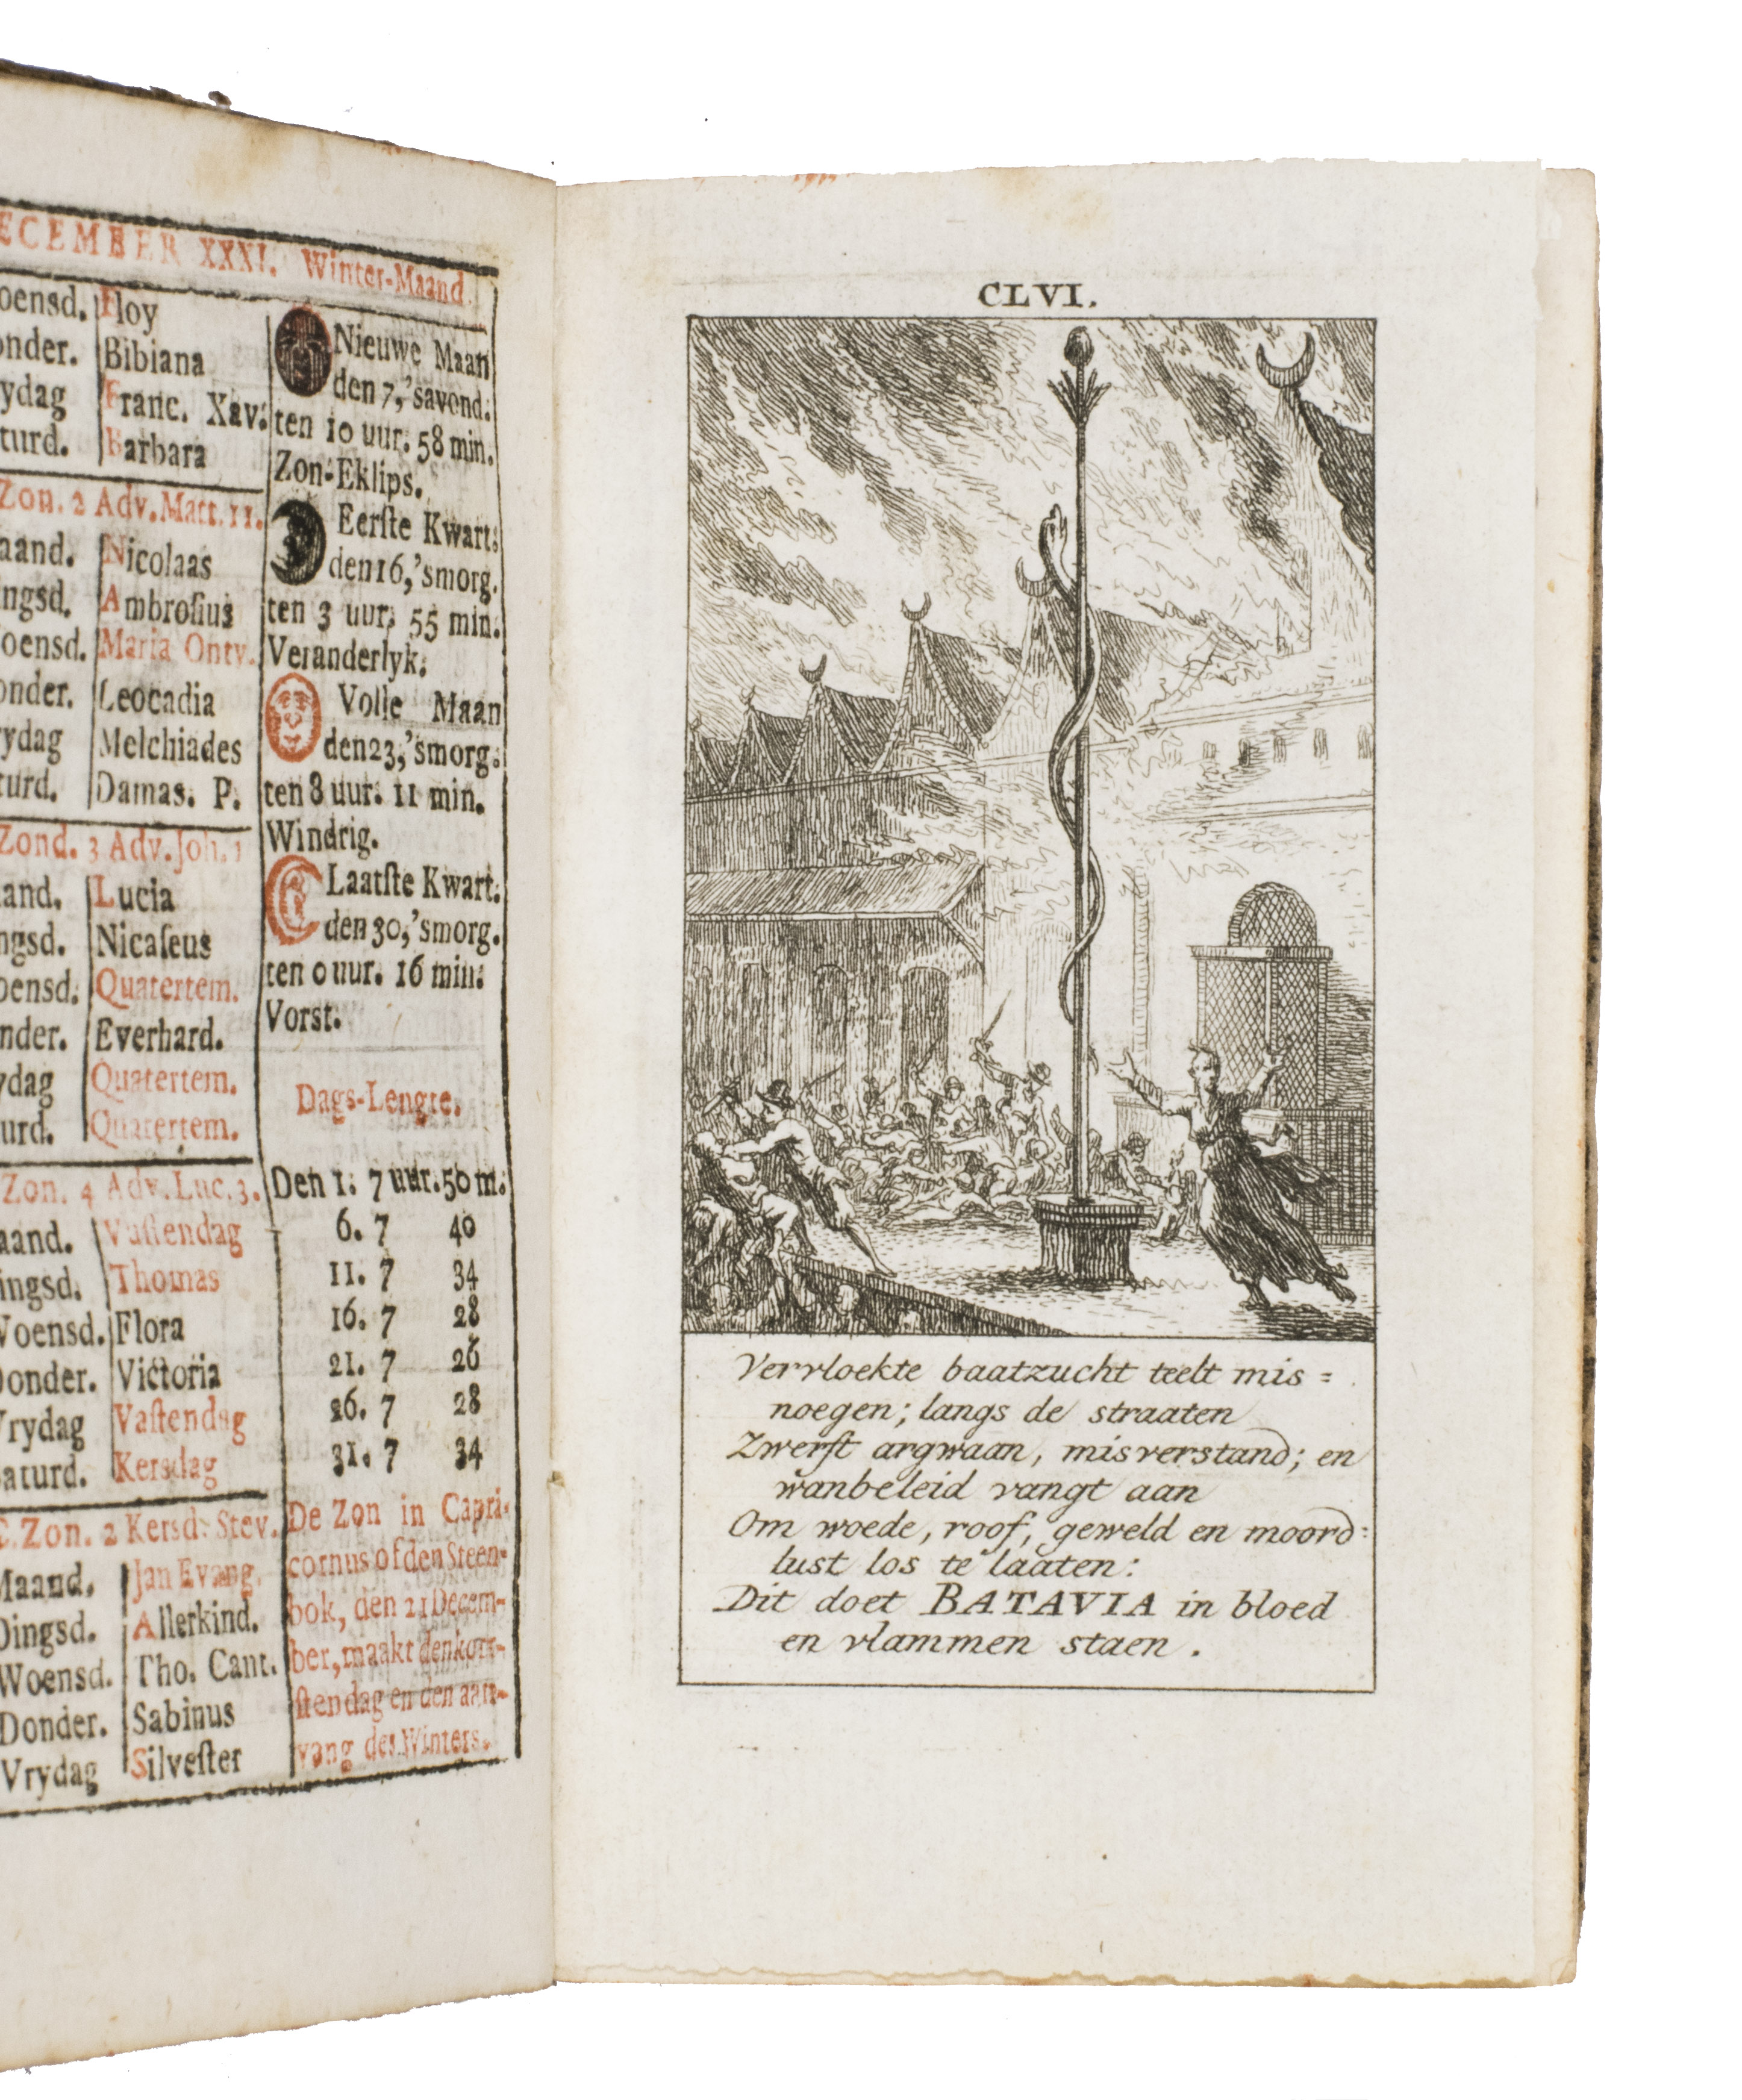 DECEMBER XXXI. Winter-Maand.
Eloy
Bibiana
ydag Franc. Xav.
turd. Barbara
Zon. 2 Adv. Matt. 11.
aand. Nicolaas
ngsd. Ambroſius
oensd. Maria Ontv.
onder. Leocadia
ydag Melchiades
turd. Damas. P.
Zond. 3 Adv. Joh. 1
and. Lucia
ngsd. Nicaſeus
oensd. Quatertem.
nder. Everhard.
ydag Quatertem.
urd. Quatertem.
Zon. 4 Adv. Luc. 3.
aand. Vaſtendag
ingsd. Thomas
Woensd. Flora
Donder. Victoria
Vrydag Vaſtendag
Saturd. Kersdag
C. Zon. 2 Kersd: Stev.
Maand. Jan Evang.
Dingsd. Allerkind.
Woensd. Tho. Cant.
Donder. Sabinus
Vrydag Silveſter
Nieuwe Maan
den 7, 'savond.
ten 10 uur. 58 min.
Zon-Eklips.
Eerſte Kwart.
den 16, 'smorg.
ten 3 uur. 55 min.
Veranderlyk.
Volle Maan
den 23, 'smorg.
ten 8 uur. 11 min.
Windrig.
Laatſte Kwart.
den 30, 'smorg.
ten 0 uur. 16 min.
Vorst.
Dags-Lengte.
Den 1. 7 uur. 50 m.
6. 7 40
11. 7 34
16. 7 28
21. 7 26
26. 7 28
31. 7 34
De Zon in Capri-
cornus of den Steen-
bok, den 21 Decem-
ber, maakt den kort-
ſten dag en den aan-
vang des Winters.
CLVI.
Vervloekte baatzucht teelt mis=
noegen; langs de straaten
Zwerft argwaan, misverstand; en
wanbeleid vangt aan
Om woede, roof, geweld en moord=
lust los te laaten:
Dit doet BATAVIA in bloed
en vlammen staen.